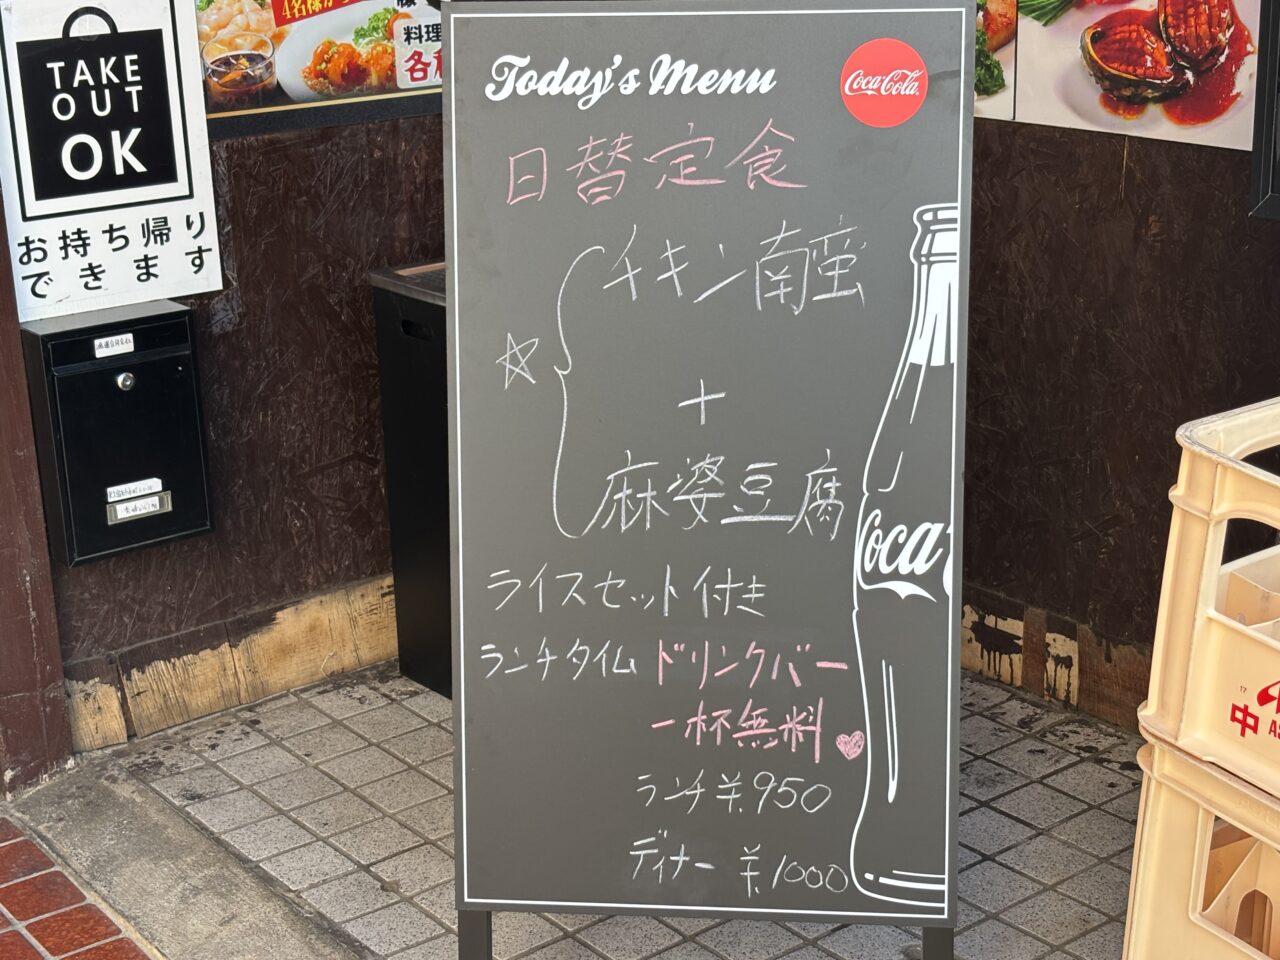 TAKE
OUT
OK
お持ち帰り
できます
4名様か
料理
各
Today's Menu
Coca-Cola
日替定食
チキン南蛮
☆
+
麻婆豆腐
Coca
ライスセット付き
ランチタイム ドリンクバー
一杯無料♥
ランチ ¥950
ディナー ¥1000
17
中